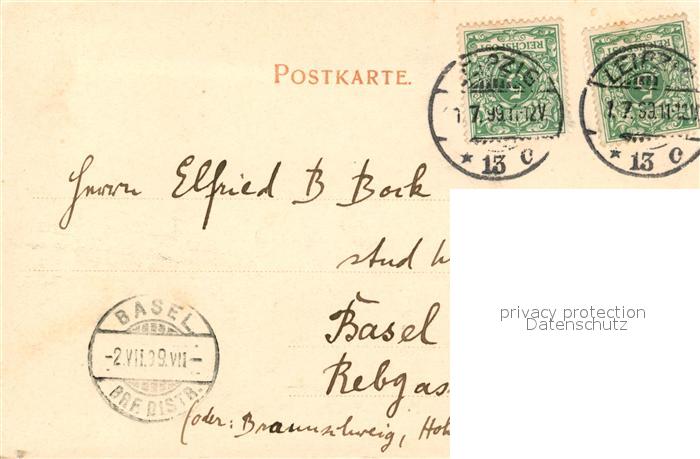 REICHSPOST REICHSPOST
POSTKARTE.
LEIPZIG LEIPZIG
1.7.99.11-12V. 1.7.99.11-12V
* 13 c * 13 c
Herrn Elfried B Bock
stud
Basel
Rebgas
(oder: Braunschweig, Hoh
BASEL
-2.VII.99.VII-
BRF. DISTR.
privacy protection
Datenschutz